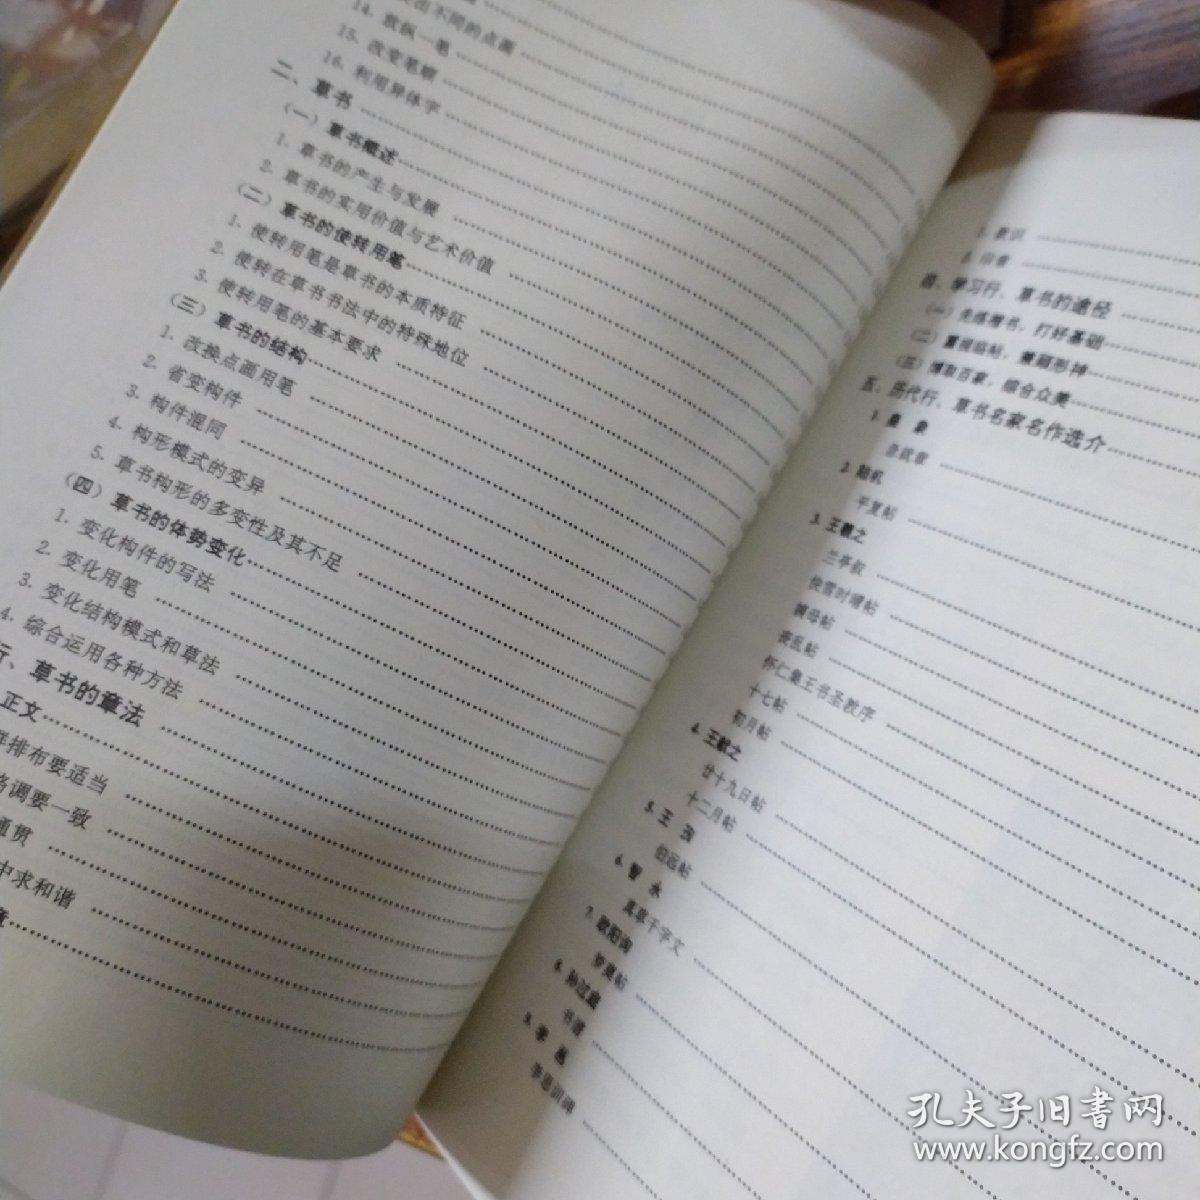 出不同的点画
14. 放纵一笔
15. 改变笔顺
16. 利用异体字
二、草书
(一) 草书概述
1. 草书的产生与发展
2. 草书的实用价值与艺术价值
(二) 草书的使转用笔
1. 使转用笔是草书的本质特征
2. 使转在草书书法中的特殊地位
3. 使转用笔的基本要求
(三) 草书的结构
1. 改换点画用笔
2. 省变构件
3. 构件混同
4. 构形模式的变异
5. 草书构形的多变性及其不足
(四) 草书的体势变化
1. 变化构件的写法
2. 变化用笔
3. 变化结构模式和草法
4. 综合运用各种方法
行、草书的章法
正文
排布要适当
格调要一致
通贯
中求和谐
1. 款识
2. 印章
四、学习行、草书的途径
(一) 先练楷书，打好基础
(二) 重视临帖，兼顾形神
(三) 博取百家，综合众美
五、历代行、草书名家名作选介
1. 皇 象
急就章
2. 陆机
平复帖
3. 王羲之
兰亭叙
快雪时晴帖
姨母帖
丧乱帖
怀仁集王书圣教序
十七帖
初月帖
4. 王献之
廿十九日帖
十二月帖
5. 王 珣
伯远帖
6. 智 永
真草千字文
7. 欧阳询
梦奠帖
8. 孙过庭
书谱
9. 李 邕
李思训碑
孔夫子旧書网
www.kongfz.com